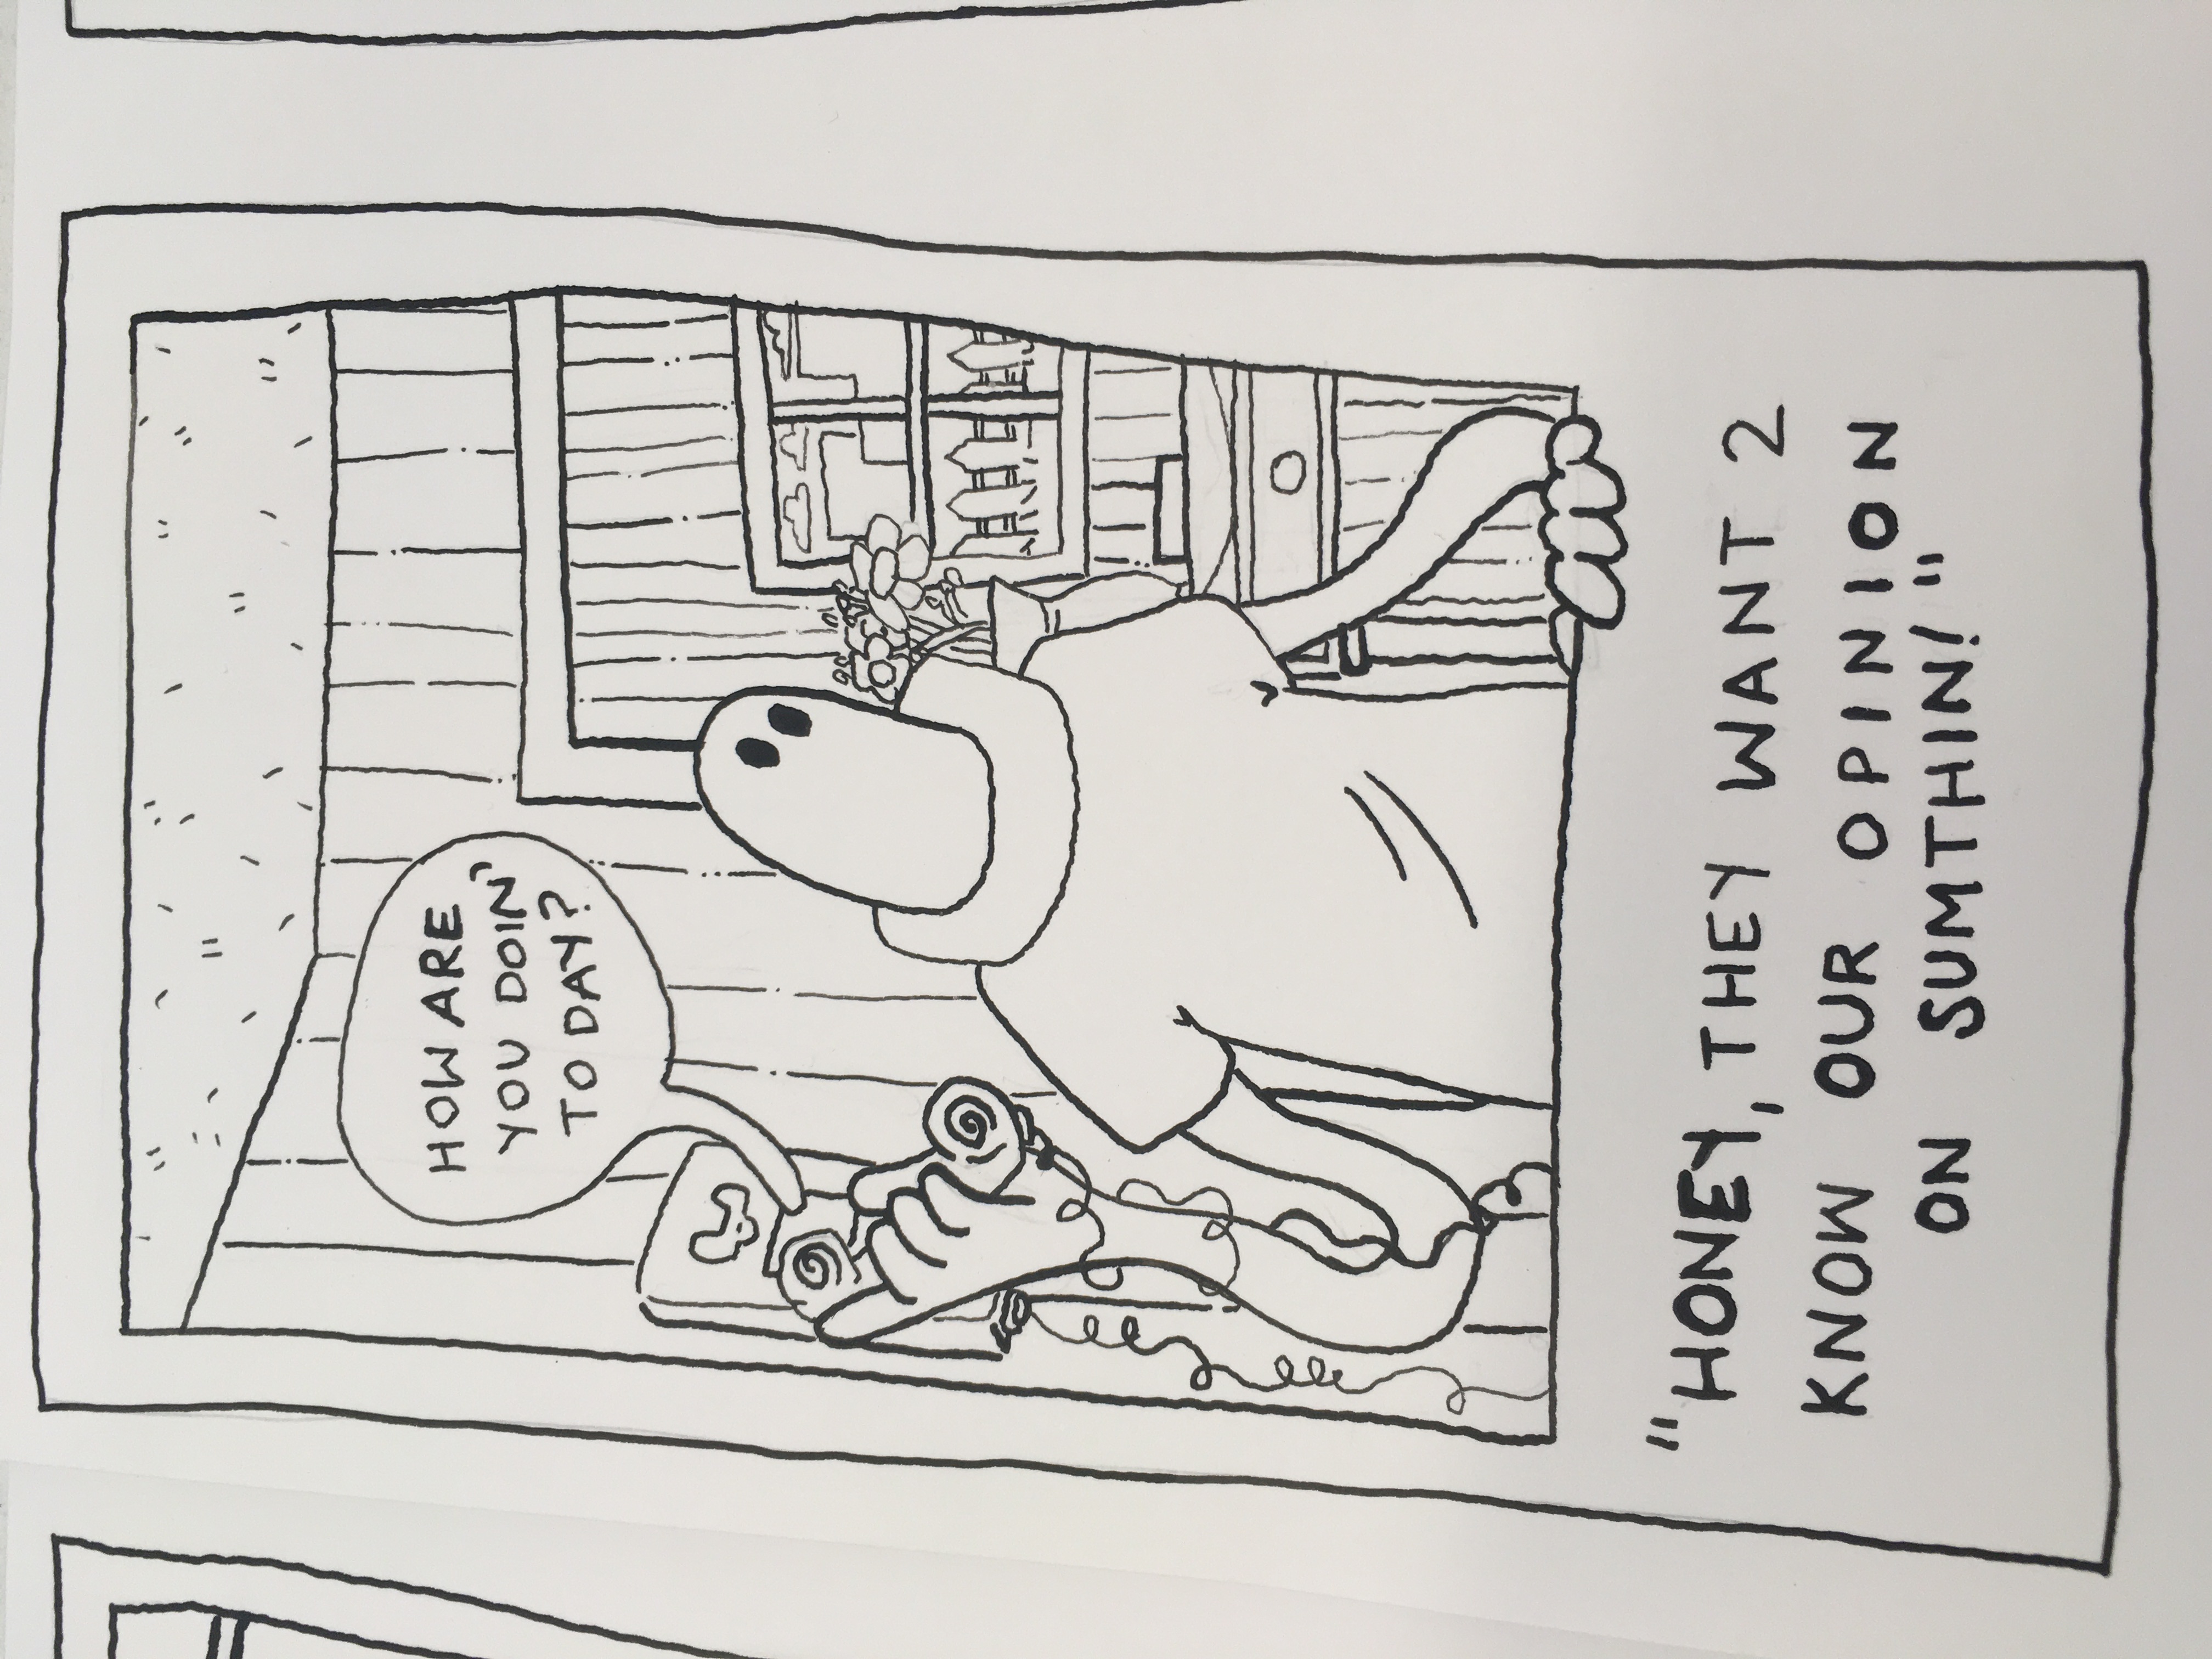 HOW ARE
YOU DOIN'
TODAY?
"HONEY, THEY WANT 2
KNOW OUR OPINION
ON SUMTHIN!"